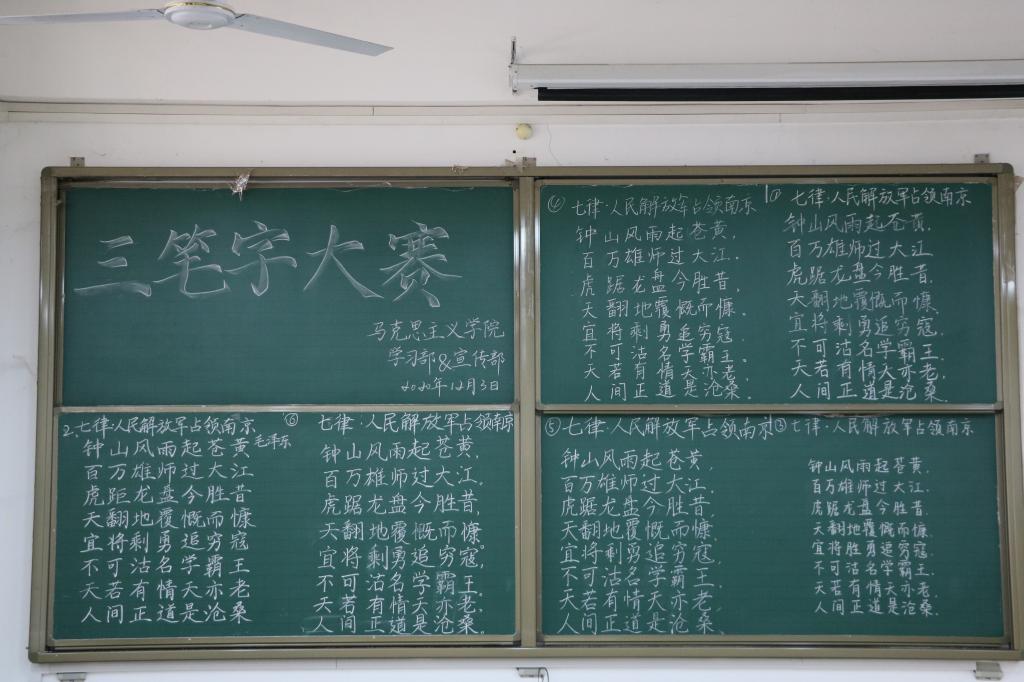 三笔字大赛
马克思主义学院
学习部&宣传部
2020年12月3日
④ 七律·人民解放军占领南京
钟山风雨起苍黄,
百万雄师过大江.
虎踞龙盘今胜昔,
天翻地覆慨而慷
宜将剩勇追穷寇
不可沽名学霸王。
天若有情天亦老,
人间正道是沧桑.
① 七律·人民解放军占领南京
钟山风雨起苍黄.
百万雄师过大江
虎踞龙盘今胜昔.
天翻地覆慨而慷
宜将剩勇追穷寇.
不可沽名学霸王.
天若有情天亦老,
人间正道是沧桑.
2、七律·人民解放军占领南京
毛泽东
钟山风雨起苍黄
百万雄师过大江
虎距龙盘今胜昔
天翻地覆慨而慷
宜将剩勇追穷寇
不可沽名学霸王
天若有情天亦老
人间正道是沧桑
⑥ 七律·人民解放军占领南京
钟山风雨起苍黄,
百万雄师过大江.
虎踞龙盘今胜昔,
天翻地覆慨而慷.
宜将剩勇追穷寇,
不可沽名学霸王.
天若有情天亦老.
人间正道是沧桑。
⑤ 七律·人民解放军占领南京
钟山风雨起苍黄,
百万雄师过大江.
虎踞龙盘今胜昔,
天翻地覆慨而慷.
宜将剩勇追穷寇,
不可沽名学霸王.
天若有情天亦老,
人间正道是沧桑.
③ 七律·人民解放军占领南京
钟山风雨起苍黄.
百万雄师过大江.
虎踞龙盘今胜昔.
天翻地覆慨而慷.
宜将胜勇追穷寇.
不可沽名学霸王.
天若有情天亦老.
人间正道是沧桑.